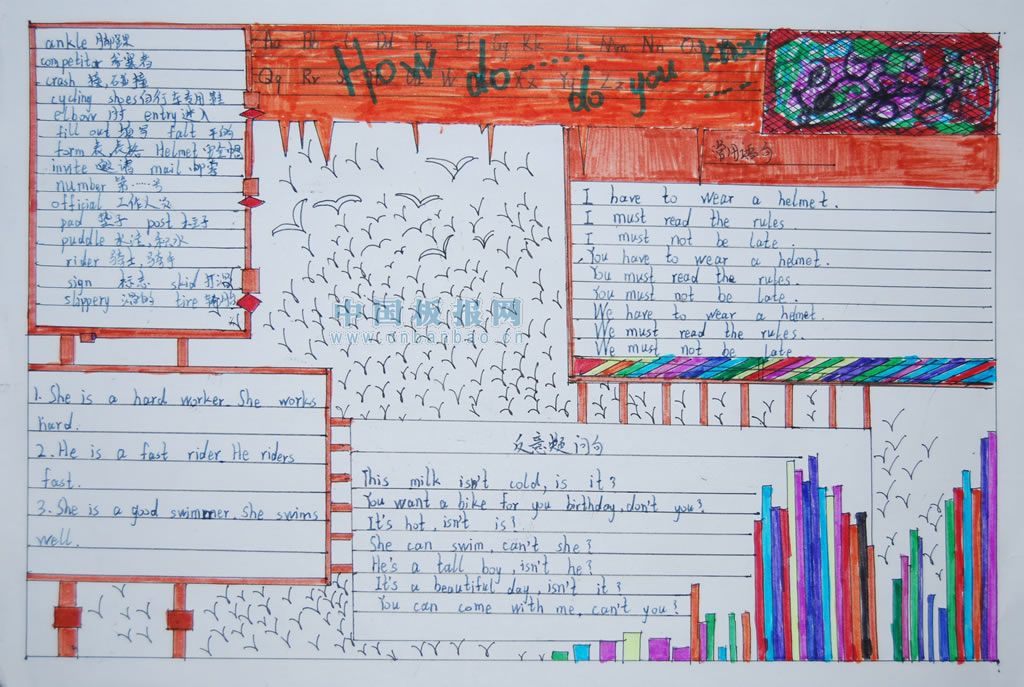 Aa Bb C Dd Ee Ff Gg Kk LL Mm Nn
Qq Rr W Xx Y Zz
How do ......
do you know ....
ankle 脚踝
competitor 参赛者
crash 撞,碰撞
cycling shoes 自行车专用鞋
elbow 肘 entry 进入
fill out 填写 falt 平的
form 表,表格 Helmet 安全帽
invite 邀请 mail 邮寄
number 第……号
official 工作人员
pad 垫子 post 柱子
puddle 水洼,积水
rider 骑士,骑手
sign 标志 skid 打滑
slippery 滑的 tire 轮胎
常用语句
I have to wear a helmet.
I must read the rules.
I must not be late.
You have to wear a helmet.
You must read the rules.
You must not be late.
We have to wear a helmet.
We must read the rules.
We must not be late
中国板报网
www.cnbanbao.cn
1. She is a hard worker. She works
hard.
2. He is a fast rider. He riders
fast.
3. She is a good swimmer. She swims
well.
反意疑问句
This milk isn't cold, is it?
You want a bike for you birthday, don't you?
It's hot, isn't is?
She can swim, can't she?
He's a tall boy, isn't he?
It's a beautiful day, isn't it?
You can come with me, can't you?